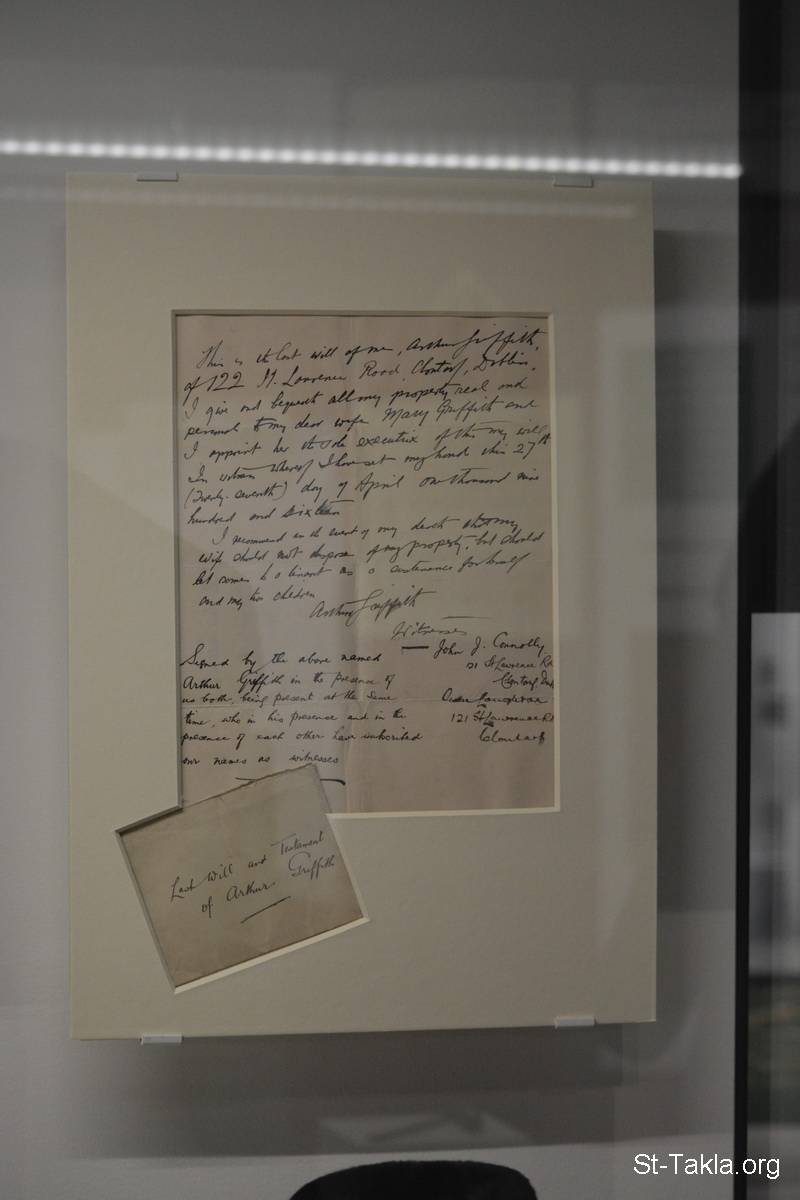 This is the last will of me, Arthur Griffith,
of 122 St. Lawrence Road, Clontarf, Dublin.
I give and bequeath all my property real and
personal to my dear wife Mary Griffith and
I appoint her the sole executrix of this my will
In witness whereof I have set my hand this 27th
(Twenty-seventh) day of April one thousand nine
hundred and sixteen
I recommend in the event of my death that my
wife should not dispose of my property, but should
let same to a tenant as a sustenance for herself
and my two children
Arthur Griffith
Witnesses
Signed by the above named
Arthur Griffith in the presence of
us both, being present at the same
time, who in his presence and in the
presence of each other have subscribed
our names as witnesses
John J. Connolly
121 St Lawrence Rd
Clontarf
Owen
121 St Lawrence Rd
Clontarf
Last Will and Testament
of Arthur Griffith
St-Takla.org